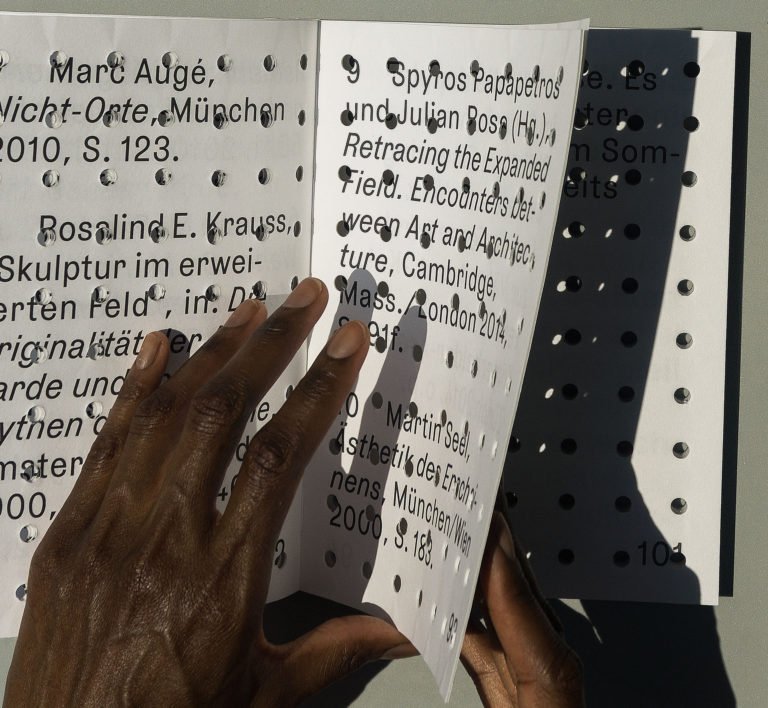 Marc Augé,
Nicht-Orte, München
2010, S. 123.
Rosalind E. Krauss,
Skulptur im erwei-
erten Feld", in: Di
riginalität der
arde und
ythen d
mater
000,
9 Spyros Papapetros
und Julian Rose (Hg.),
Retracing the Expanded
Field. Encounters bet-
ween Art and Architec-
ture, Cambridge,
Mass./London 2014,
S. 91f.
10 Martin Seel,
Ästhetik des Erschei-
nens, München/Wien
2000, S. 183.
e. Es
ster
m Som-
eits
101